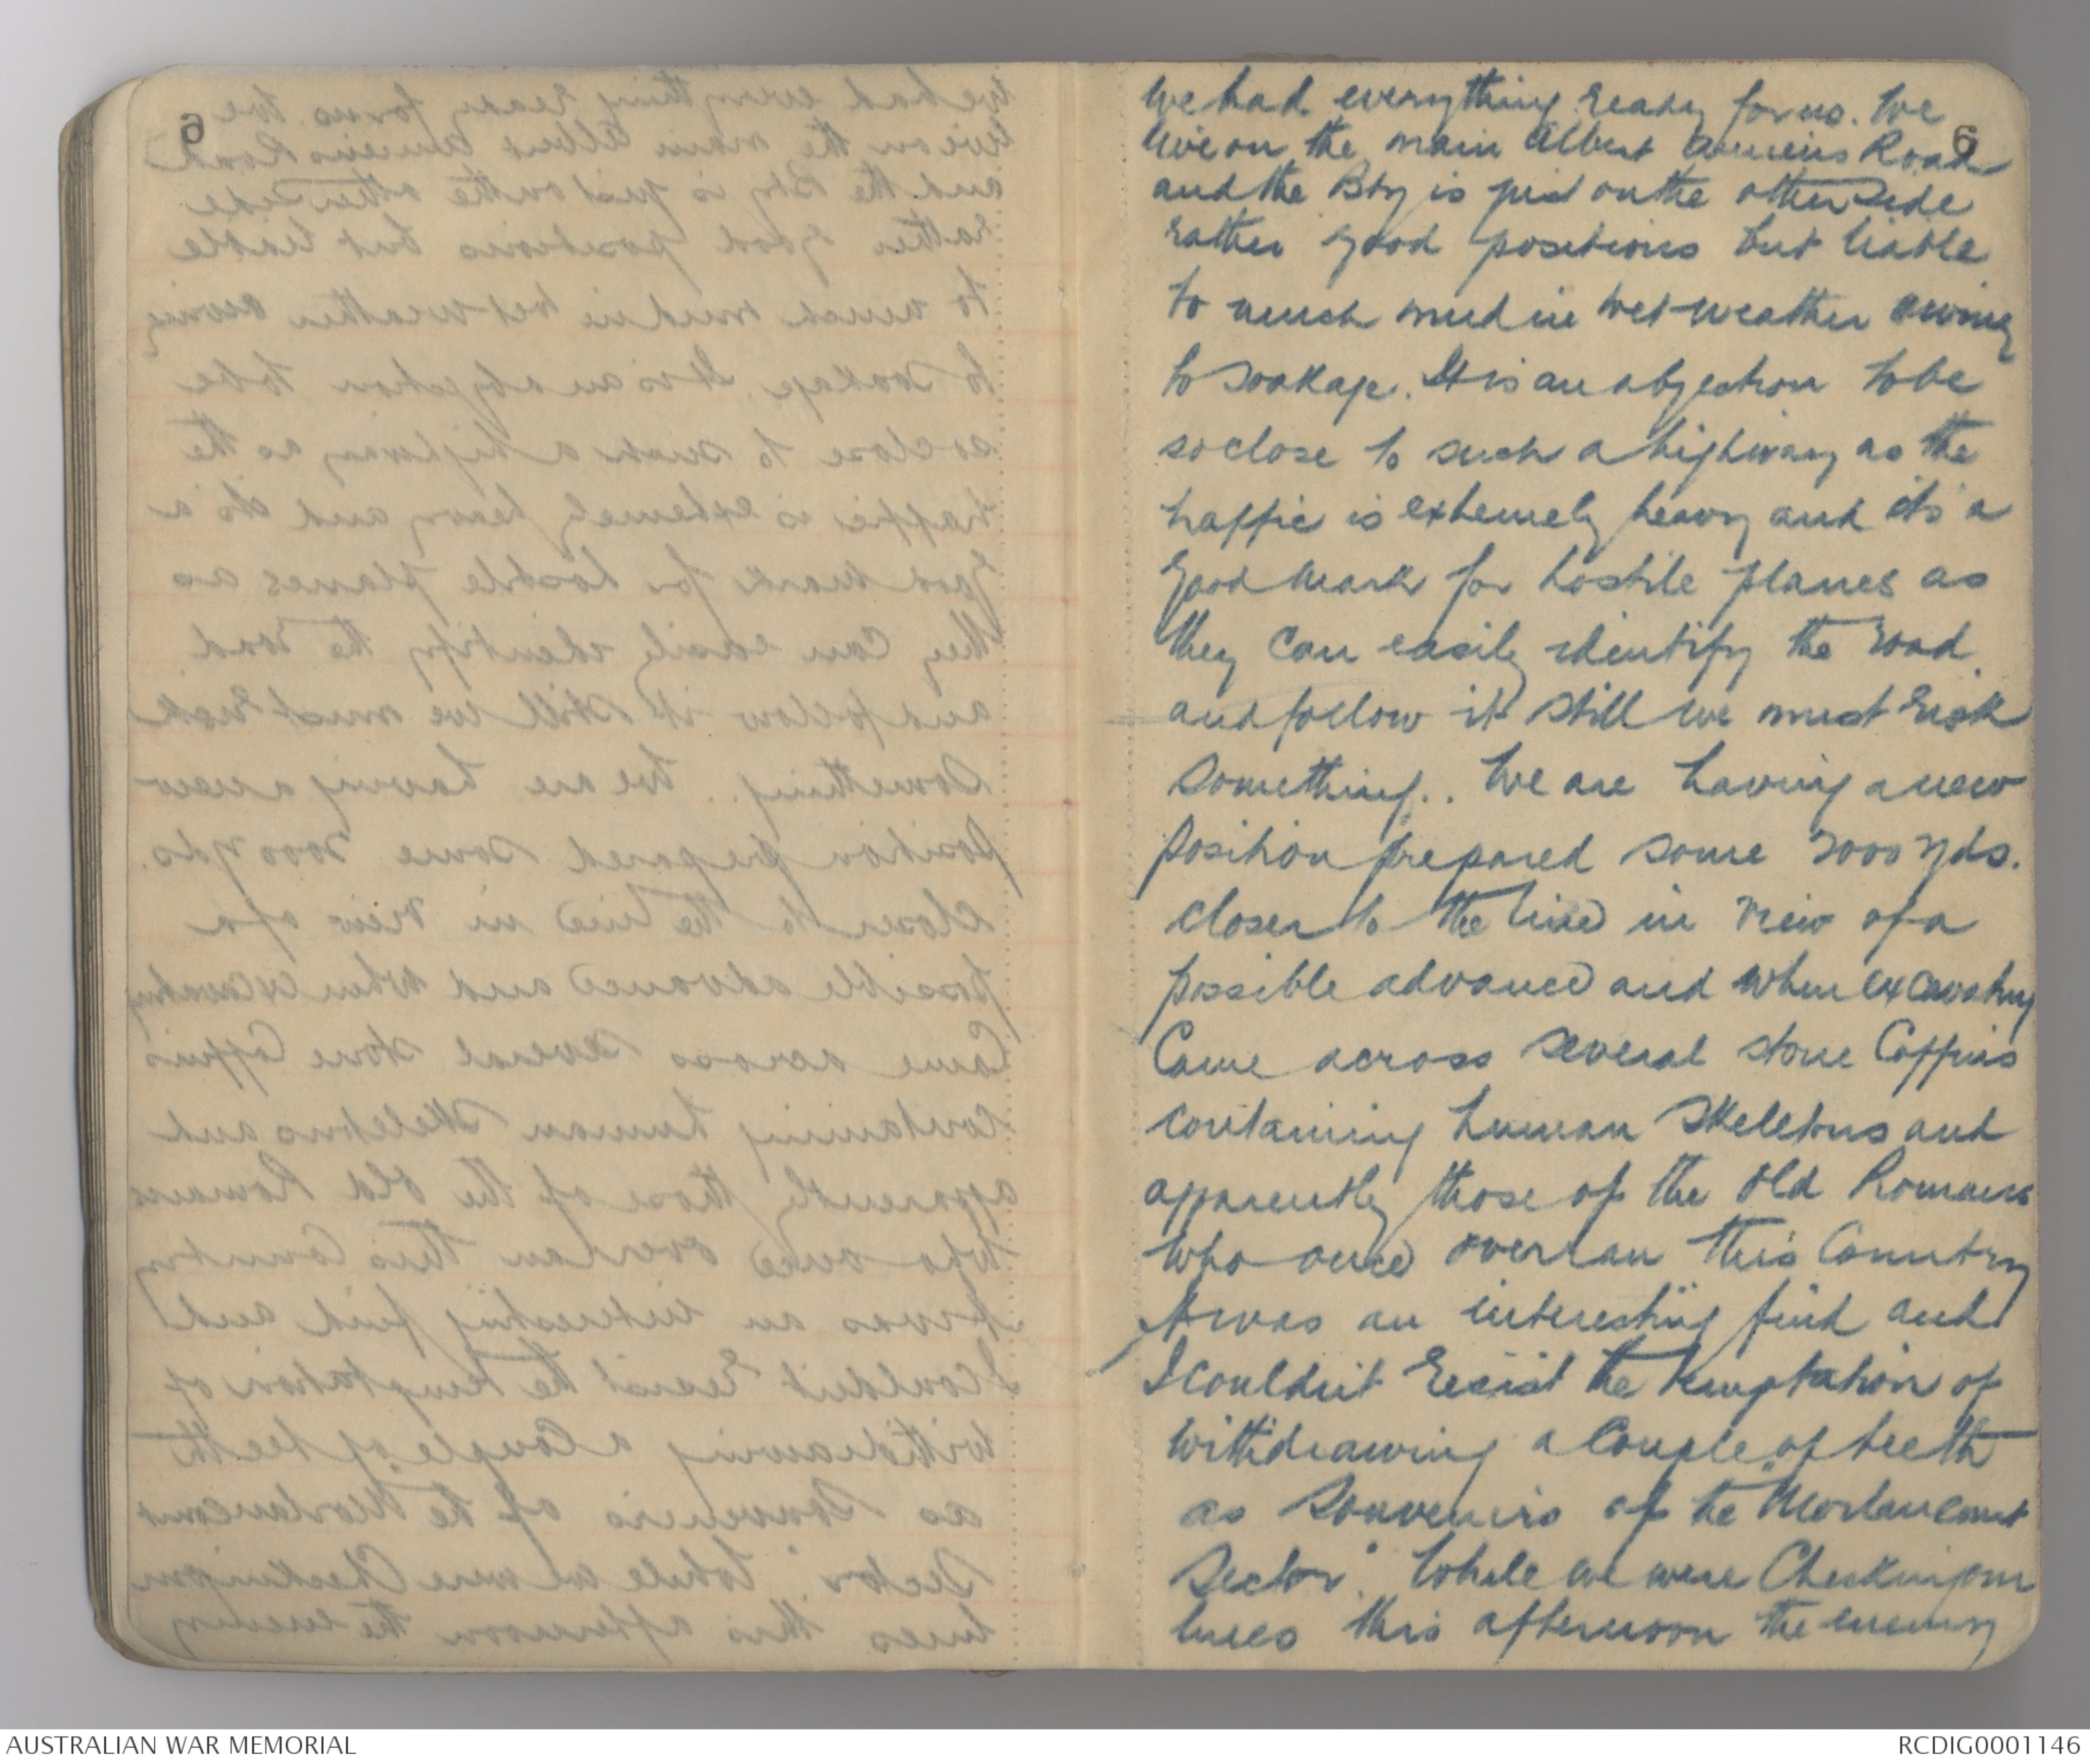 6
we had everything ready for us. We
live on the main Albert Amiens Road
and the Bty is just on the other side
rather good positions but liable
to much mud in wet weather owing
to soakage. It is an objection to be
so close to such a highway as the
traffic is extremely heavy and it's a
good mark for hostile planes as
they can easily identify the road
and follow it still we must risk
something.. We are having a new
position prepared some 3000 yds.
closer to the line in view of a
possible advance and when excavating
Came across several stone Coffins
containing human skeletons and
apparently those of the old Romans
who once overran this Country
It was an interesting find and
I couldn't resist the temptation of
withdrawing a couple of teeth
as souvenirs of the "Morlancourt
Sector". While we were Checking our
lines this afternoon the enemy
AUSTRALIAN WAR MEMORIAL
RCDIG0001146